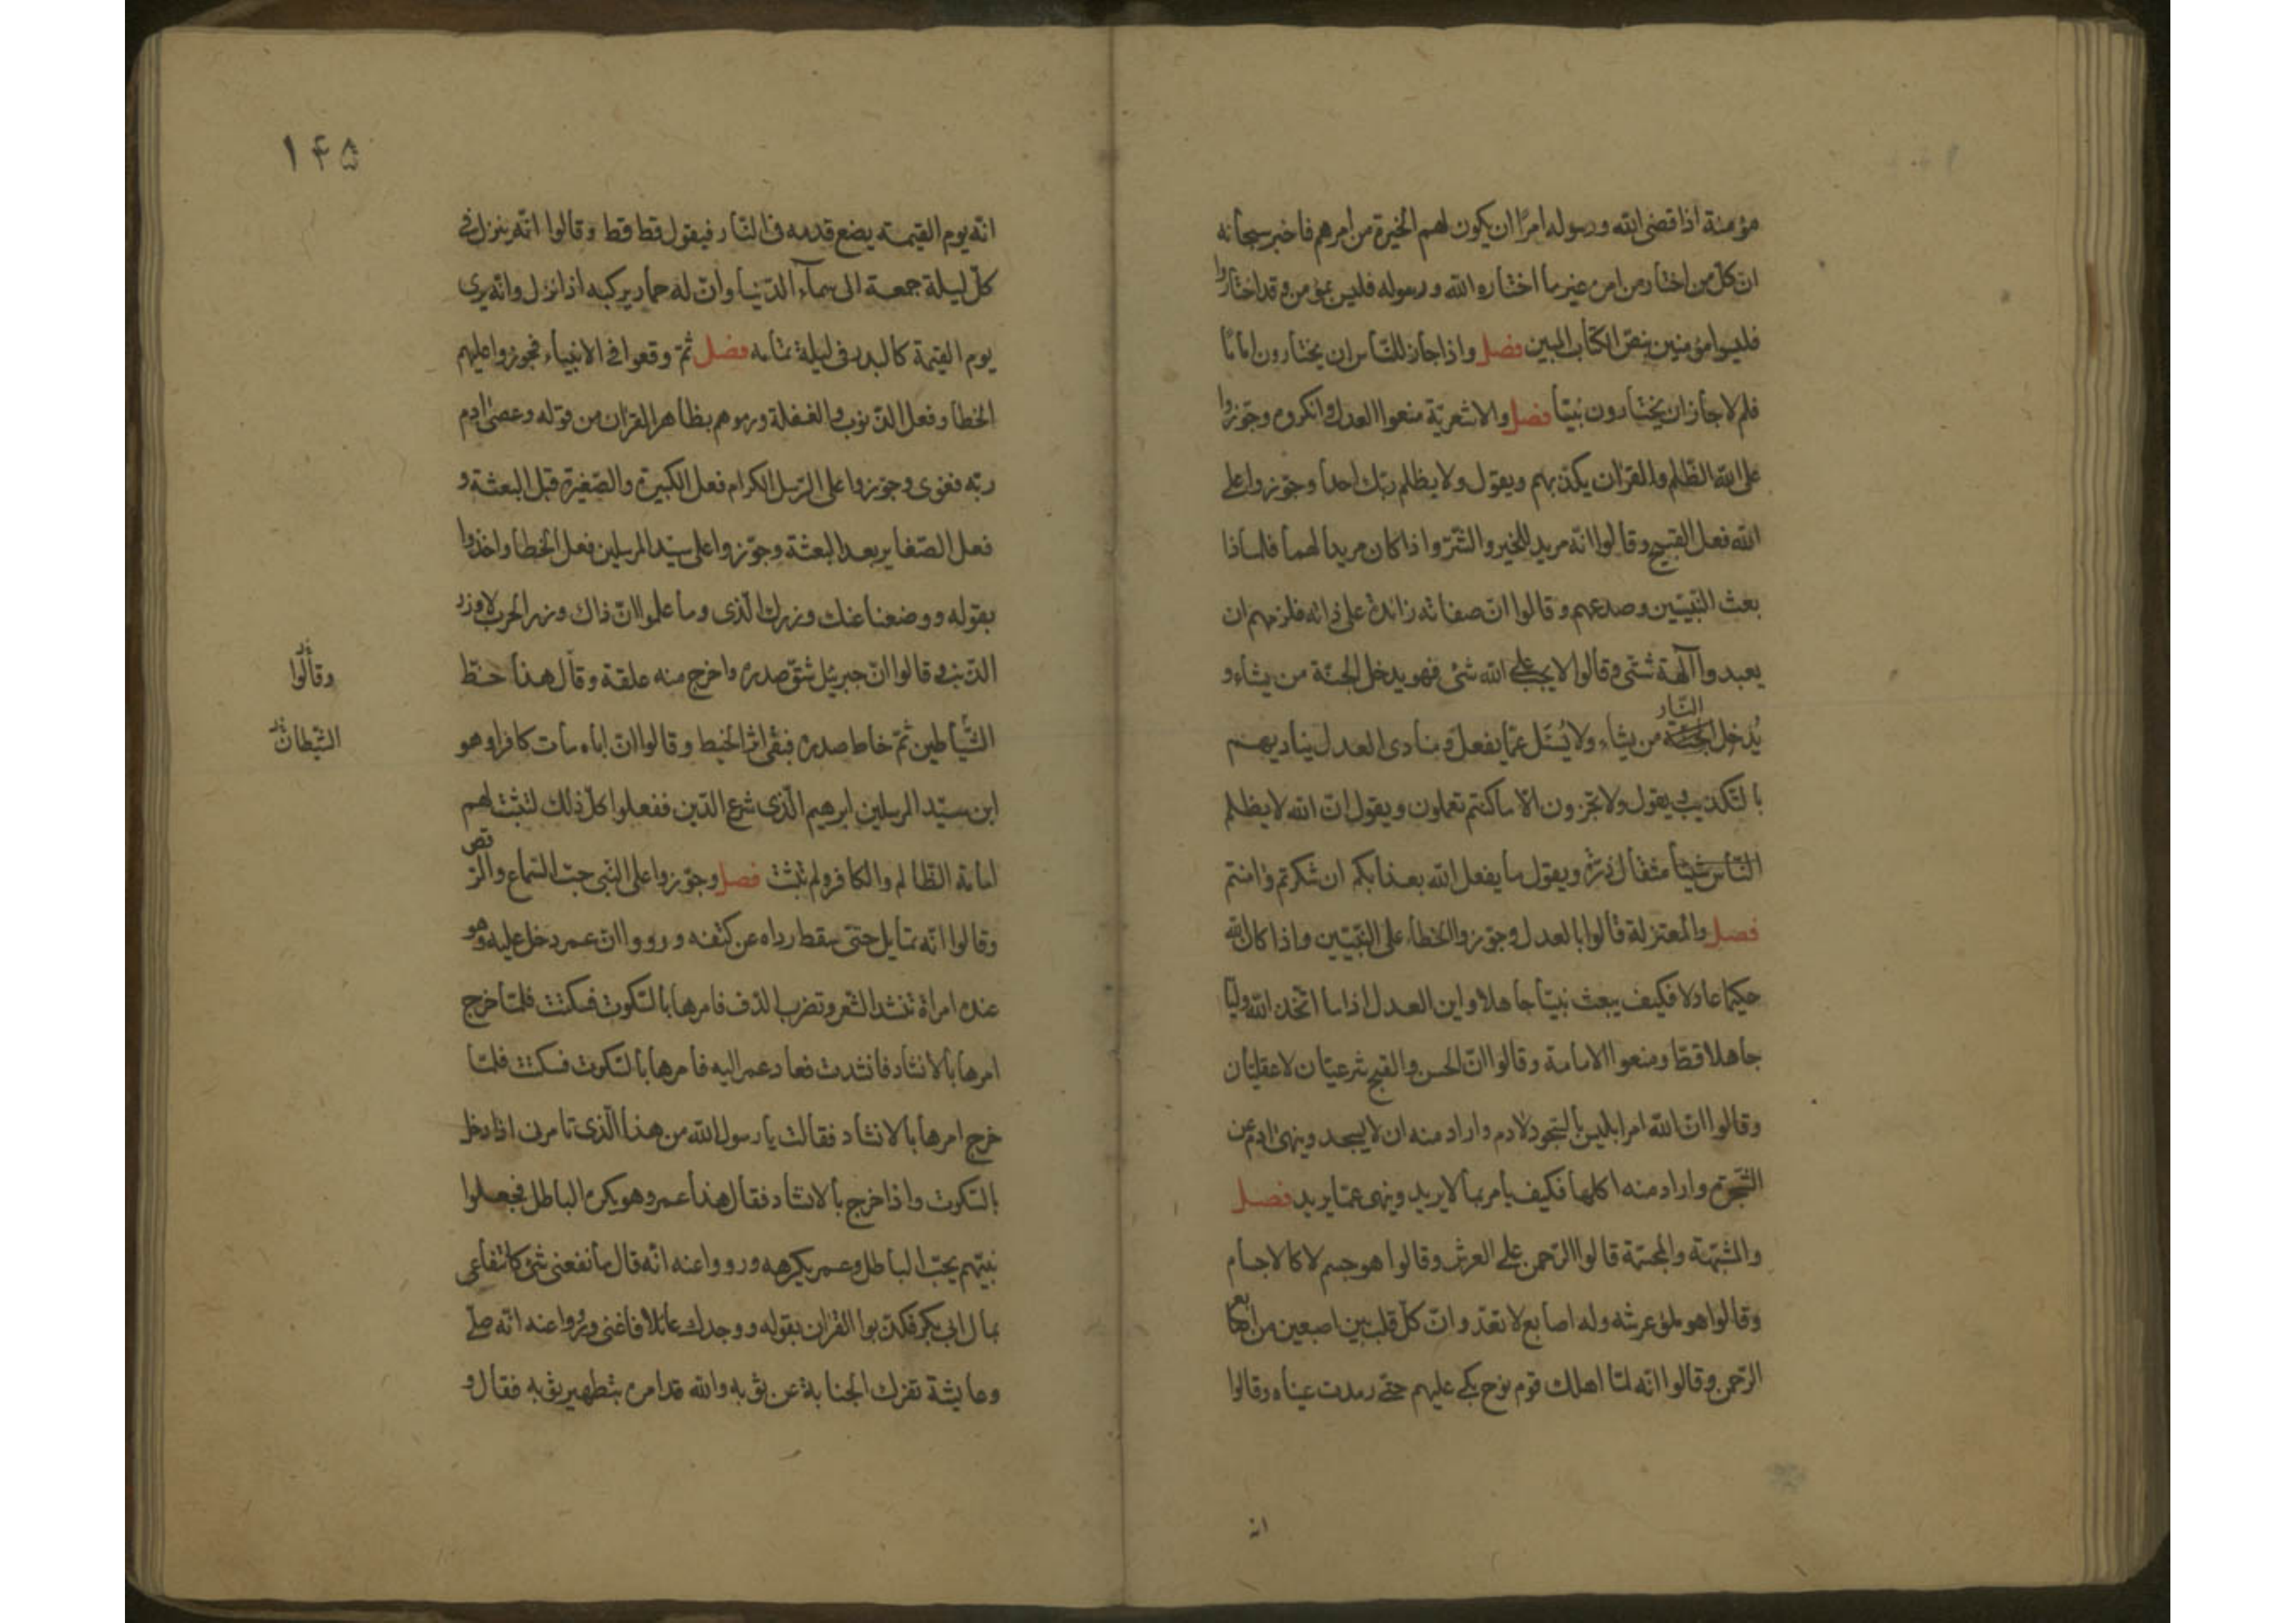 مؤمنة اذا قضى الله ورسوله امرًا ان يكون لهم الخيرة من امرهم فاخبر سبحانه
ان كلّ من اختار من امره غير ما اختاره الله ورسوله فليس بمؤمن وقد اختاروا
فليسوا مؤمنين بنصّ الكتاب المبين فصل واذا جاز للنّاس ان يختارون امامًا
فلم لا جاز ان يختارون نبيّا فصل والاشعريّة منعوا العدل وانكروه وجوّزوا
على الله الظّلم والقران يكذّبهم ويقول ولا يظلم ربّك احدا وجوّزوا على
الله فعل القبيح وقالوا انّه مريد للخير والشّرّ واذا كان مريدا لهما فلماذا
بعث النّبيّين وصدعهم وقالوا انّ صفاته زائدة على ذاته فلزمهم ان
يعبدوا آلهة شتّى وقالوا لا يجب على الله شئ فهو يدخل الجنّة من يشاء و
يُدخل النّار من يشاء ولا يُسئل عمّا يفعل ومنادى العدل يناديهم
بالتكذيب ويقول ولا تجزون الّا ما كنتم تعملون ويقول انّ الله لا يظلم
النّاس شيئا مثقال ذرّة ويقول ما يفعل الله بعذابكم ان شكرتم وامنتم
فصل والمعتزلة قالوا بالعدل وجوّزوا الخطاء على النّبيّين واذا كان الله
حكيما عادلا فكيف يبعث نبيّا جاهلا واين العدل اذا ما اتّخذ الله وليّا
جاهلا قطّ ومنعوا الامامة وقالوا انّ الحسن والقبح شرعيّان لا عقليّان
وقالوا انّ الله امر ابليس بالسّجود لادم واراد منه ان لا يسجد وينهى ادم عن
الشّجرة واراد منه اكلها فكيف يأمر بما لا يريد وينهى عمّا يريد فصل
والمشبّهة والمجسّمة قالوا الرّحمن على العرش وقالوا هو جسم لا كالاجسام
وقالوا هو ملؤ عرشه وله اصابع لا تعدّ وانّ كلّ قلب بين اصبعين من اصابع
الرّحمن وقالوا انّه لمّا اهلك قوم نوح بكى عليهم حتّى رمدت عيناه وقالوا
انه
١۴۵
انّه يوم القيمة يضع قدمه فى النّار فيقول قط قط وقالوا انّه ينزل فى
كلّ ليلة جمعة الى سماء الدّنيا وانّ له حمار يركبه اذا نزل وانّه يرى
يوم القيمة كالبدر فى ليلة تمامه فصل ثمّ وقعوا فى الانبياء فجوزوا عليهم
الخطا وفعل الذّنوب والغفلة ورموهم بظاهر القران من قوله وعصى ادم
ربّه فغوى وجوّزوا على الرّسل الكرام فعل الكبيرة والصّغيرة قبل البعثة و
فعل الصّغاير بعد البعثة وجوّزوا على سيّد المرسلين فعل الخطا واخذوا
بقوله ووضعنا عنك وزرك الّذى وما علموا انّ ذاك وزر الحرب لا وزر
الذّنب وقالوا انّ جبرئيل شقّ صدره واخرج منه علقة وقال هذا حظّ
وقالوا
الشّياطين ثمّ خاط صدره فبقى اثر الخيط وقالوا انّ اباه مات كافرا وهو
الشيطان
ابن سيّد المرسلين ابرهيم الّذى شرع الدّين ففعلوا كلّ ذلك لتثبت لهم
امامة الظّالم والكافر ولم تثبت فصل وجوّزوا على النّبى حبّ السّماع والرّقص
وقالوا انّه تمايل حتّى سقط رداه عن كتفه ورووا انّ عمر دخل عليه وهو
عنده امراة تنشد الشّعر وتضرب الدّف فامرها بالسّكوت فسكتت فلمّا خرج
امرها بالانشاد فانشدت فعاد عمر اليه فامرها بالسّكوت فسكتت فلمّا
خرج امرها بالانشاد فقالت يا رسول الله من هذا الّذى تامرنى اذا دخل
بالسّكوت واذا خرج بالانشاد فقال هذا عمر وهو يكره الباطل فجعلوا
نبيّهم يحبّ الباطل وعمر يكرهه ورووا عنه انّه قال ما نفعنى شئ كانتفاعى
بمال ابى بكر فكذّبوا القران بقوله ووجدك عائلا فاغنى ورووا عنه انّه صلّى
وعايشة تفرك الجنابة عن ثوبه والله قد امره بتطهير ثوبه فقال و